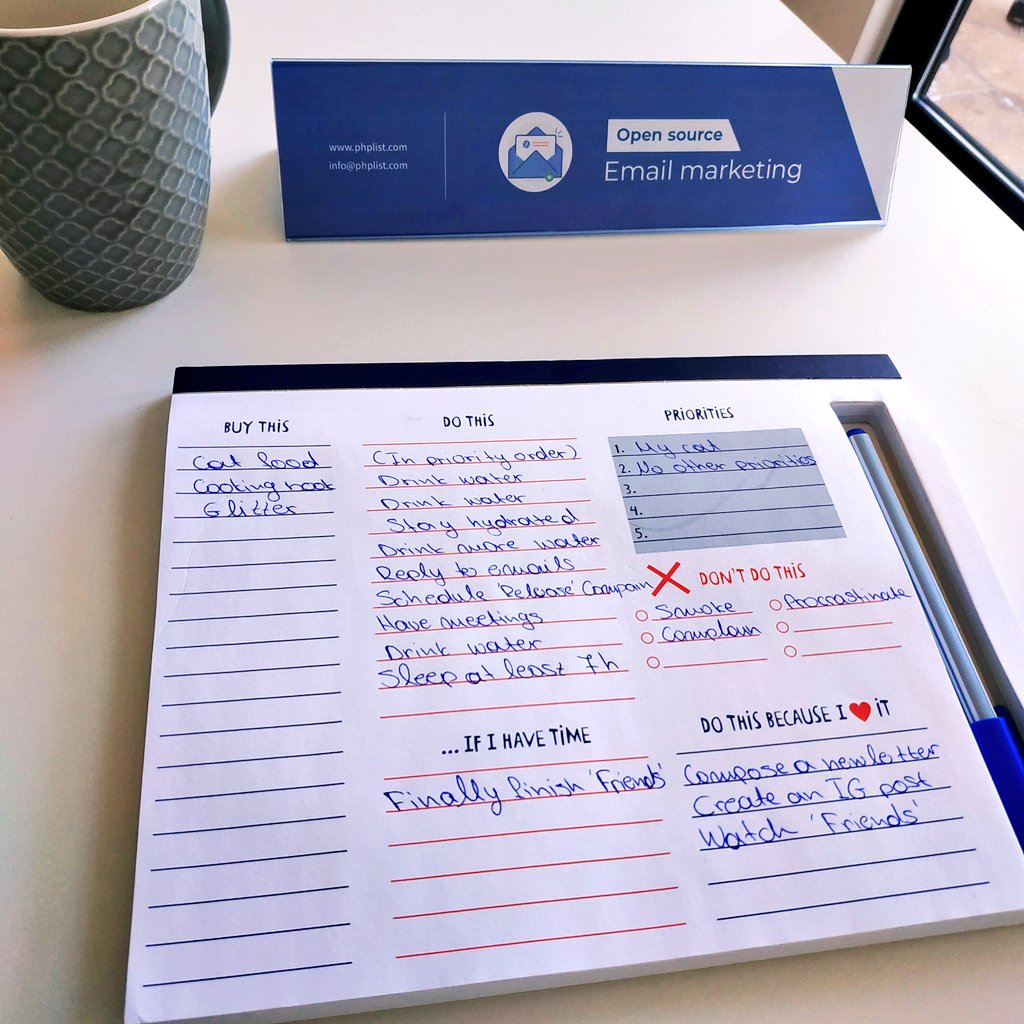 www.phplist.com
info@phplist.com
Open source
Email marketing
BUY THIS
Cat food
Cooking book
Glitter
DO THIS
(In priority order)
Drink water
Drink water
Stay hydrated
Drink more water
Reply to emails
Schedule 'Release' Campain
Have meetings
Drink water
Sleep at least 7h
... IF I HAVE TIME
Finally finish 'Friends'
PRIORITIES
1. My cat
2. No other priorities
3.
4.
5.
DON'T DO THIS
Smoke
Procrastinate
Complain
DO THIS BECAUSE I ❤ IT
Compose a newsletter
Create an IG post
Watch 'Friends'